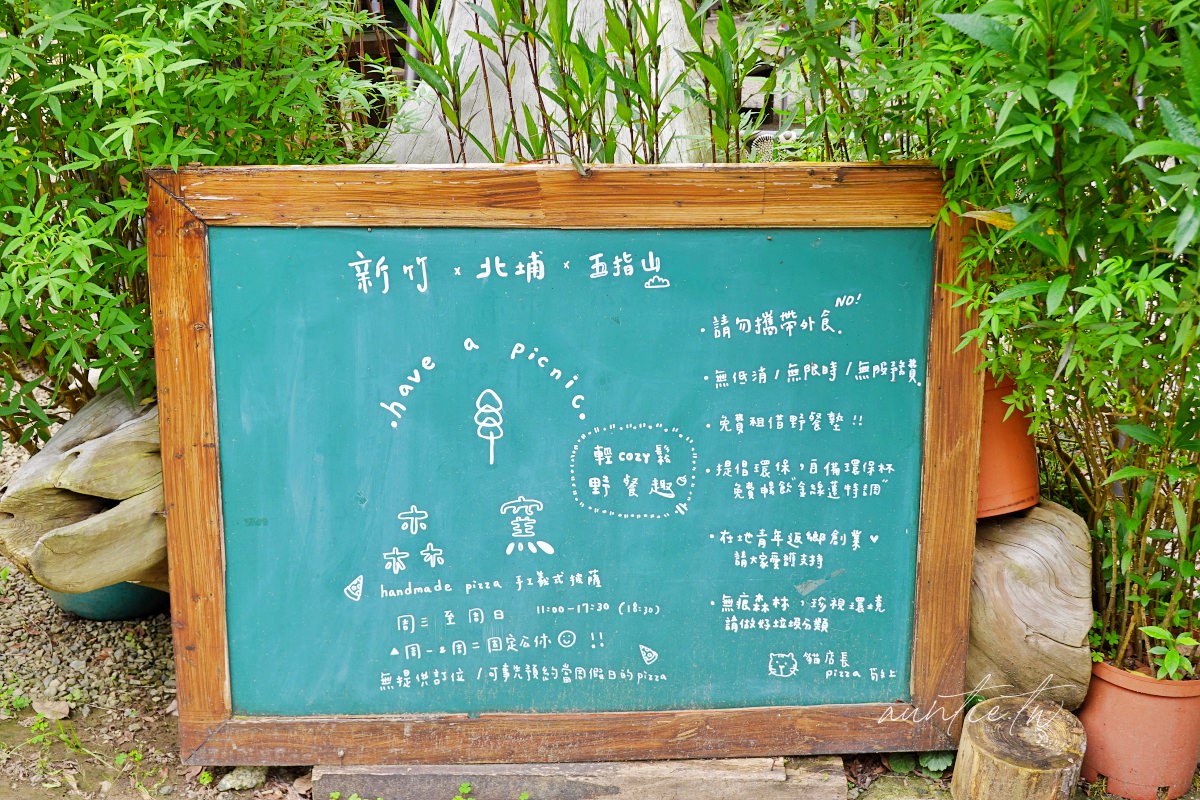 新竹 x 北埔 x 五指山
.have a picnic.
輕cozy鬆
野餐趣
森窯
handmade pizza 手工義式披薩
周三至周日 11:00-17:30 (18:30)
▲周一&周二固定公休☺!!
無提供訂位 / 可事先預約當周假日的pizza
NO!
·請勿攜帶外食。
·無低消 / 無限時 / 無服務費。
·免費租借野餐墊!!
·提倡環保,自備環保杯
免費暢飲"金線蓮特調"
·在地青年返鄉創業♥
請大家愛護支持
·無痕森林,珍視環境
請做好垃圾分類
貓店長
pizza 敬上
auntie.tw